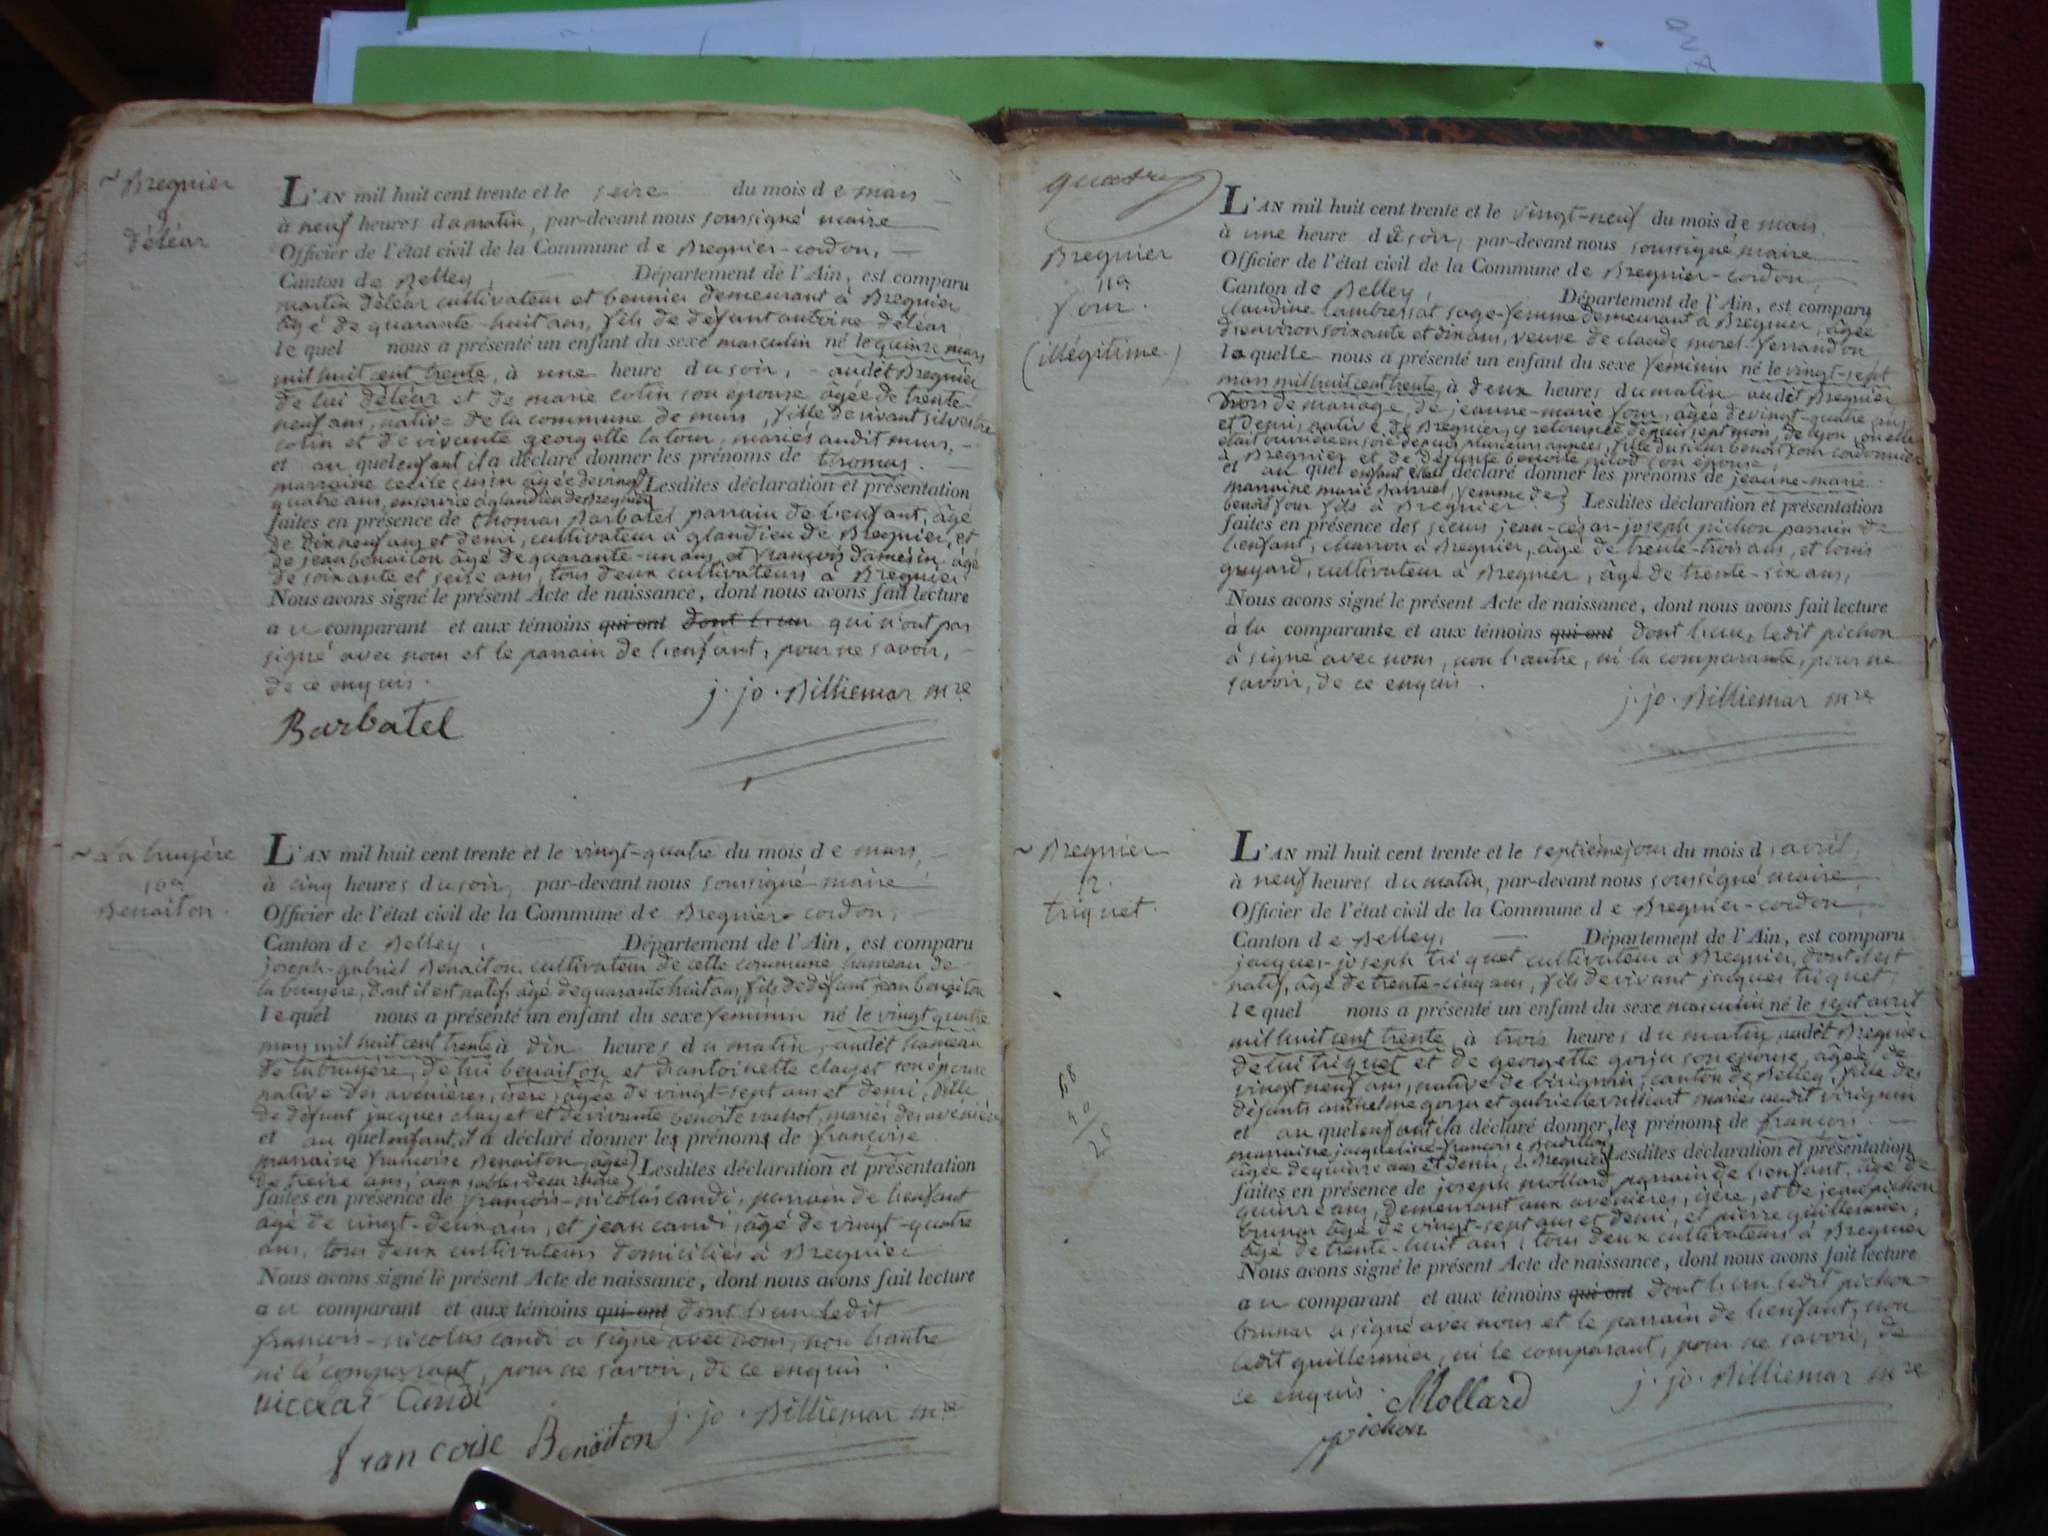 Bregnier
déléar
L'AN mil huit cent trente et le seize du mois de mars
à neuf heures du matin, par-devant nous soussigné maire
Officier de l'état civil de la Commune de Bregnier-cordon,
Canton de Belley, Département de l'Ain, est comparu
martin déléar cultivateur et demeurant à Bregnier
âgé de quarante-huit ans, fils de défunt antoine déléar
lequel nous a présenté un enfant du sexe masculin né le quinze mars
mil huit cent trente, à une heure du soir, audit Bregnier
de lui déléar et de marie cotin son épouse âgée de trente-
neuf ans, native de la commune de murs, fille de vivant silvestre
cotin et de vivante georgette latour, mariés audit murs,
et au quel enfant il a déclaré donner les prénoms de thomas.
marraine cecile cusin âgée de vingt
quatre ans, en service à glandieu de Bregnier
Lesdites déclaration et présentation
faites en présence de thomas Barbatel parrain de l'enfant, âgé
de dix neuf ans et demi, cultivateur à glandieu de Bregnier, et
de jean benaiton âgé de quarante-un ans, et françois damesin âgé
de soixante et seize ans, tous deux cultivateurs à Bregnier
Nous avons signé le présent Acte de naissance, dont nous avons fait lecture
au comparant et aux témoins qui ont dont l'un qui n'ont pas
signé avec nous et le parrain de l'enfant, pour ne savoir,
de ce enquis.
j. jo. Billiemar mre
Barbatel
La bruyère
10e
Benaiton.
L'AN mil huit cent trente et le vingt-quatre du mois de mars,
à cinq heures du soir, par-devant nous soussigné maire
Officier de l'état civil de la Commune de Bregnier-cordon,
Canton de Belley, Département de l'Ain, est comparu
joseph-gabriel Benaiton cultivateur de cette commune hameau de
la bruyère, dont il est natif, âgé de quarante huit ans, fils de défunt jean benaiton
lequel nous a présenté un enfant du sexe feminin né le vingt quatre
mars mil huit cent trente à dix heures du matin, audit hameau
de la bruyère, de lui benaiton et d'antoinette clayet son épouse
native des avenières, isère, âgée de vingt-sept ans et demi, fille
de défunt jacques clayet et de vivante benoite vachot, mariés des avenières
et au quel enfant, il a déclaré donner les prénoms de françoise.
marraine françoise Benaiton, âgée
de treize ans, aux sables deca rhône
Lesdites déclaration et présentation
faites en présence de françois-nicolas candi, parrain de l'enfant
âgé de vingt-deux ans, et jean candi, âgé de vingt-quatre
ans, tous deux cultivateurs domiciliés à Bregnier
Nous avons signé le présent Acte de naissance, dont nous avons fait lecture
au comparant et aux témoins qui ont dont l'un ledit
françois-nicolas candi a signé avec nous, non l'autre
ni le comparant, pour ne savoir, de ce enquis.
nicolas Candi
j. jo. Billiemar mre
francoise Benaiton
quatre
Bregnier
11e
four.
(illégitime)
L'AN mil huit cent trente et le vingt-neuf du mois de mars
à une heure du soir, par-devant nous soussigné maire
Officier de l'état civil de la Commune de Bregnier-cordon,
Canton de Belley, Département de l'Ain, est comparu
claudine lambressat sage-femme demeurant à Bregnier, âgée
d'environ soixante et dix ans, veuve de claude morel-ferrandon
laquelle nous a présenté un enfant du sexe féminin né le vingt-sept
mars mil huit cent trente, à deux heures du matin audit Bregnier
hors de mariage, de jeanne-marie four, âgée de vingt-quatre ans
et demi, native de Bregnier, y retournée depuis sept mois, de lyon, où elle
était ouvrière en soie depuis plusieurs années, fille du sieur benoit four cordonnier
à Bregnier et de défunte benoite pilod son épouse,
et au quel enfant elle a déclaré donner les prénoms de jeanne-marie.
marraine marie Barruel, femme de
benoit four fils à Bregnier.
Lesdites déclaration et présentation
faites en présence des sieurs jean-césar-joseph pichon parrain de
l'enfant, charron à Bregnier, âgé de trente-trois ans, et louis
guyard, cultivateur à Bregnier, âgé de trente-six ans,
Nous avons signé le présent Acte de naissance, dont nous avons fait lecture
à la comparante et aux témoins qui ont dont l'un, ledit pichon
à signé avec nous, non l'autre, ni la comparante, pour ne
savoir, de ce enquis.
j. jo. Billiemar mre
Bregnier
12.
triquet.
L'AN mil huit cent trente et le septième jour du mois d'avril,
à neuf heures du matin, par-devant nous soussigné maire,
Officier de l'état civil de la Commune de Bregnier-cordon,
Canton de Belley, Département de l'Ain, est comparu
jacques-joseph triquet cultivateur à Bregnier, dont il est
natif, âgé de trente-cinq ans, fils de vivant jacques triquet,
lequel nous a présenté un enfant du sexe masculin né le sept avril
mil huit cent trente à trois heures du matin audit Bregnier
de lui triquet et de georgette gorju son épouse, âgée de
vingt neuf ans, native de virignin, canton de Belley, fille des
défunts anthelme gorju et gabrielle mariés audit virignin
et au quel enfant il a déclaré donner les prénoms de françois.
marraine jacqueline-françoise
âgée de quinze ans et demi, à Bregnier
Lesdites déclaration et présentation
faites en présence de joseph mollard parrain de l'enfant, âgé de
quinze ans, demeurant aux avenières, isère, et de jean pichon
brunar âgé de vingt-sept ans et demi, et pierre guillermier,
âgé de trente-huit ans, tous deux cultivateurs à Bregnier
Nous avons signé le présent Acte de naissance, dont nous avons fait lecture
au comparant et aux témoins qui ont dont l'un ledit pichon-
brunar a signé avec nous et le parrain de l'enfant, non
ledit guillermier, ni le comparant, pour ne savoir, de
ce enquis.
j. jo. Billiemar mre
Mollard
pichon